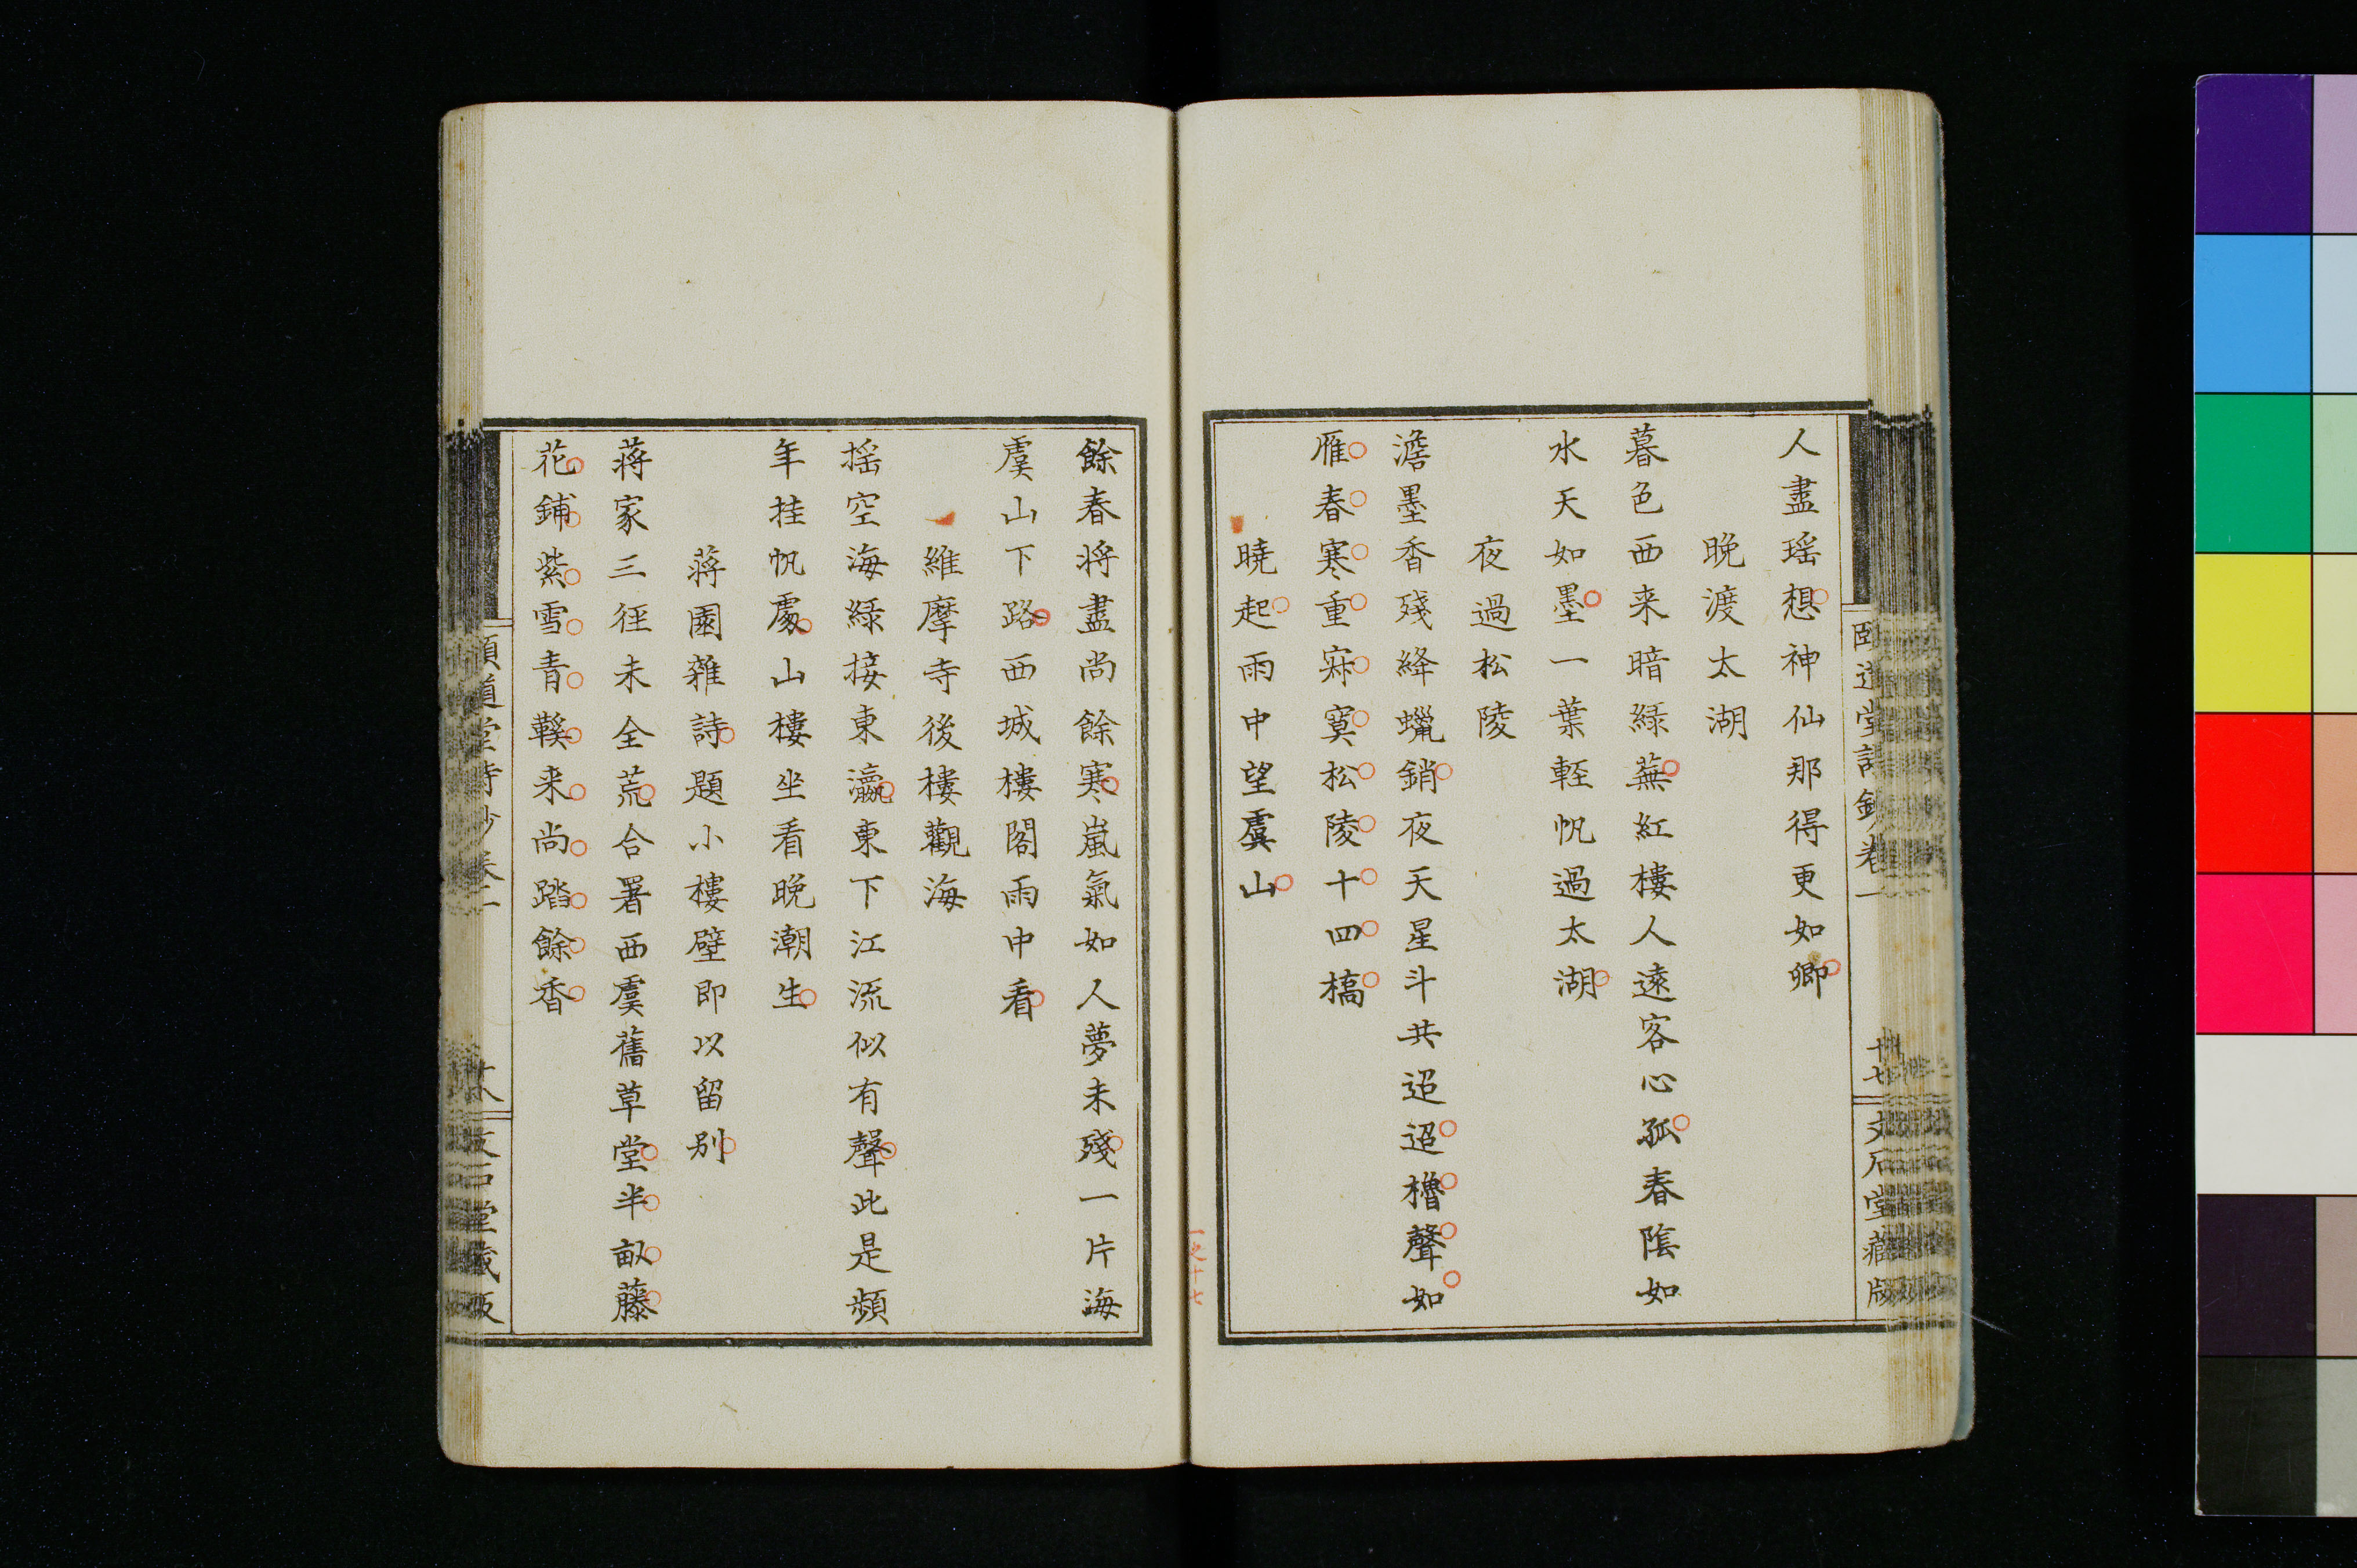 人盡瑶想神仙那得更如卿
晚渡太湖
暮色西来暗綠蕪紅樓人遠客心孤春陰如
水天如墨一葉輕帆過太湖
夜過松陵
澹墨香殘絳蠟銷夜天星斗共迢迢櫓聲如
雁春寒重寂寞松陵十四橋
曉起雨中望虞山
一之十七
餘春将盡尚餘寒嵐氣如人夢未殘一片海
虞山下路西城樓閣雨中看
維摩寺後樓觀海
摇空海綠接東瀛東下江流似有聲此是頻
年挂帆處山樓坐看晚潮生
蔣園雜詩題小樓壁即以留别
蔣家三徑未全荒合署西虞舊草堂半畝藤
花鋪紫雪青鞵来尚踏餘香
文石堂藏版